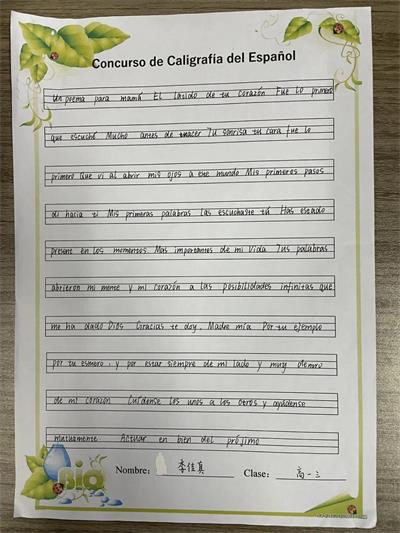 Concurso de Caligrafía del Español
Un poema para mamá El latido de tu corazón Fue lo primero
que escuché Mucho antes de nacer Tu sonrisa tu cara fue lo
primero Que vi al abrir mis ojos a este mundo Mis primeros pasos
di hacia ti Mis primeras palabras Las escuchaste tú Has estado
present en los momentos. Mas importantes de mi Vida Tus palabras
abrieron mi mente y mi corazón a las posibilidades infinitas que
me ha dado Dios Gracias te doy, Madre mía Por tu ejemplo
por tu esmero, y por estar siempre de mi lado y muy dentro
de mi corazón Cuídense los unos a los otros y ayúdense
mutuamente Actuar en bien del prójimo
Nombre: 李佳真 Clase: 高一三
Bio